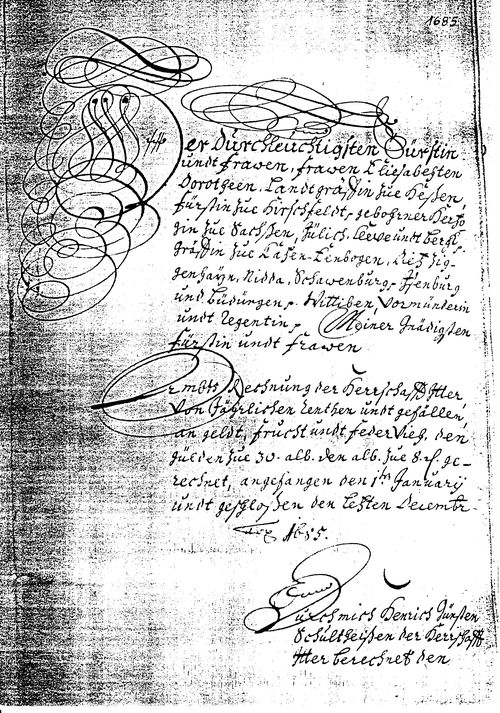 1685
Der Durchleuchtigsten Fürstin
undt Frawen, Frawen Elisabethen
Dorotheen, Landtgräffin zue Heßen,
Fürstin zue Hirschfeldt, gebohrner Hertzo
gin zue Sachßen, Jülich, Cleve undt Berg,
Gräffin zue Catzen-Elnbogen, Dietz, Zig
genhayn, Nidda, Schawenburg, Ysenburg
und Büdingen, Wittiben, Vormünderin
undt Regentin, Meiner Gnädigsten
Fürstin undt Frawen
Ambts Rechnung der Herrschafft Itter
Von Jährlichen Renthen undt gefällen,
an geldt, frucht undt federvieh, den
gülden zue 30. alb. den alb. zue 8. ₰. ge-
rechnet, angefangen den 1ten January
undt geschloßen den letzten Decembr.
1685.
Durch mich Henrich
Schultheißen der Herrschafft
Itter berechnet den